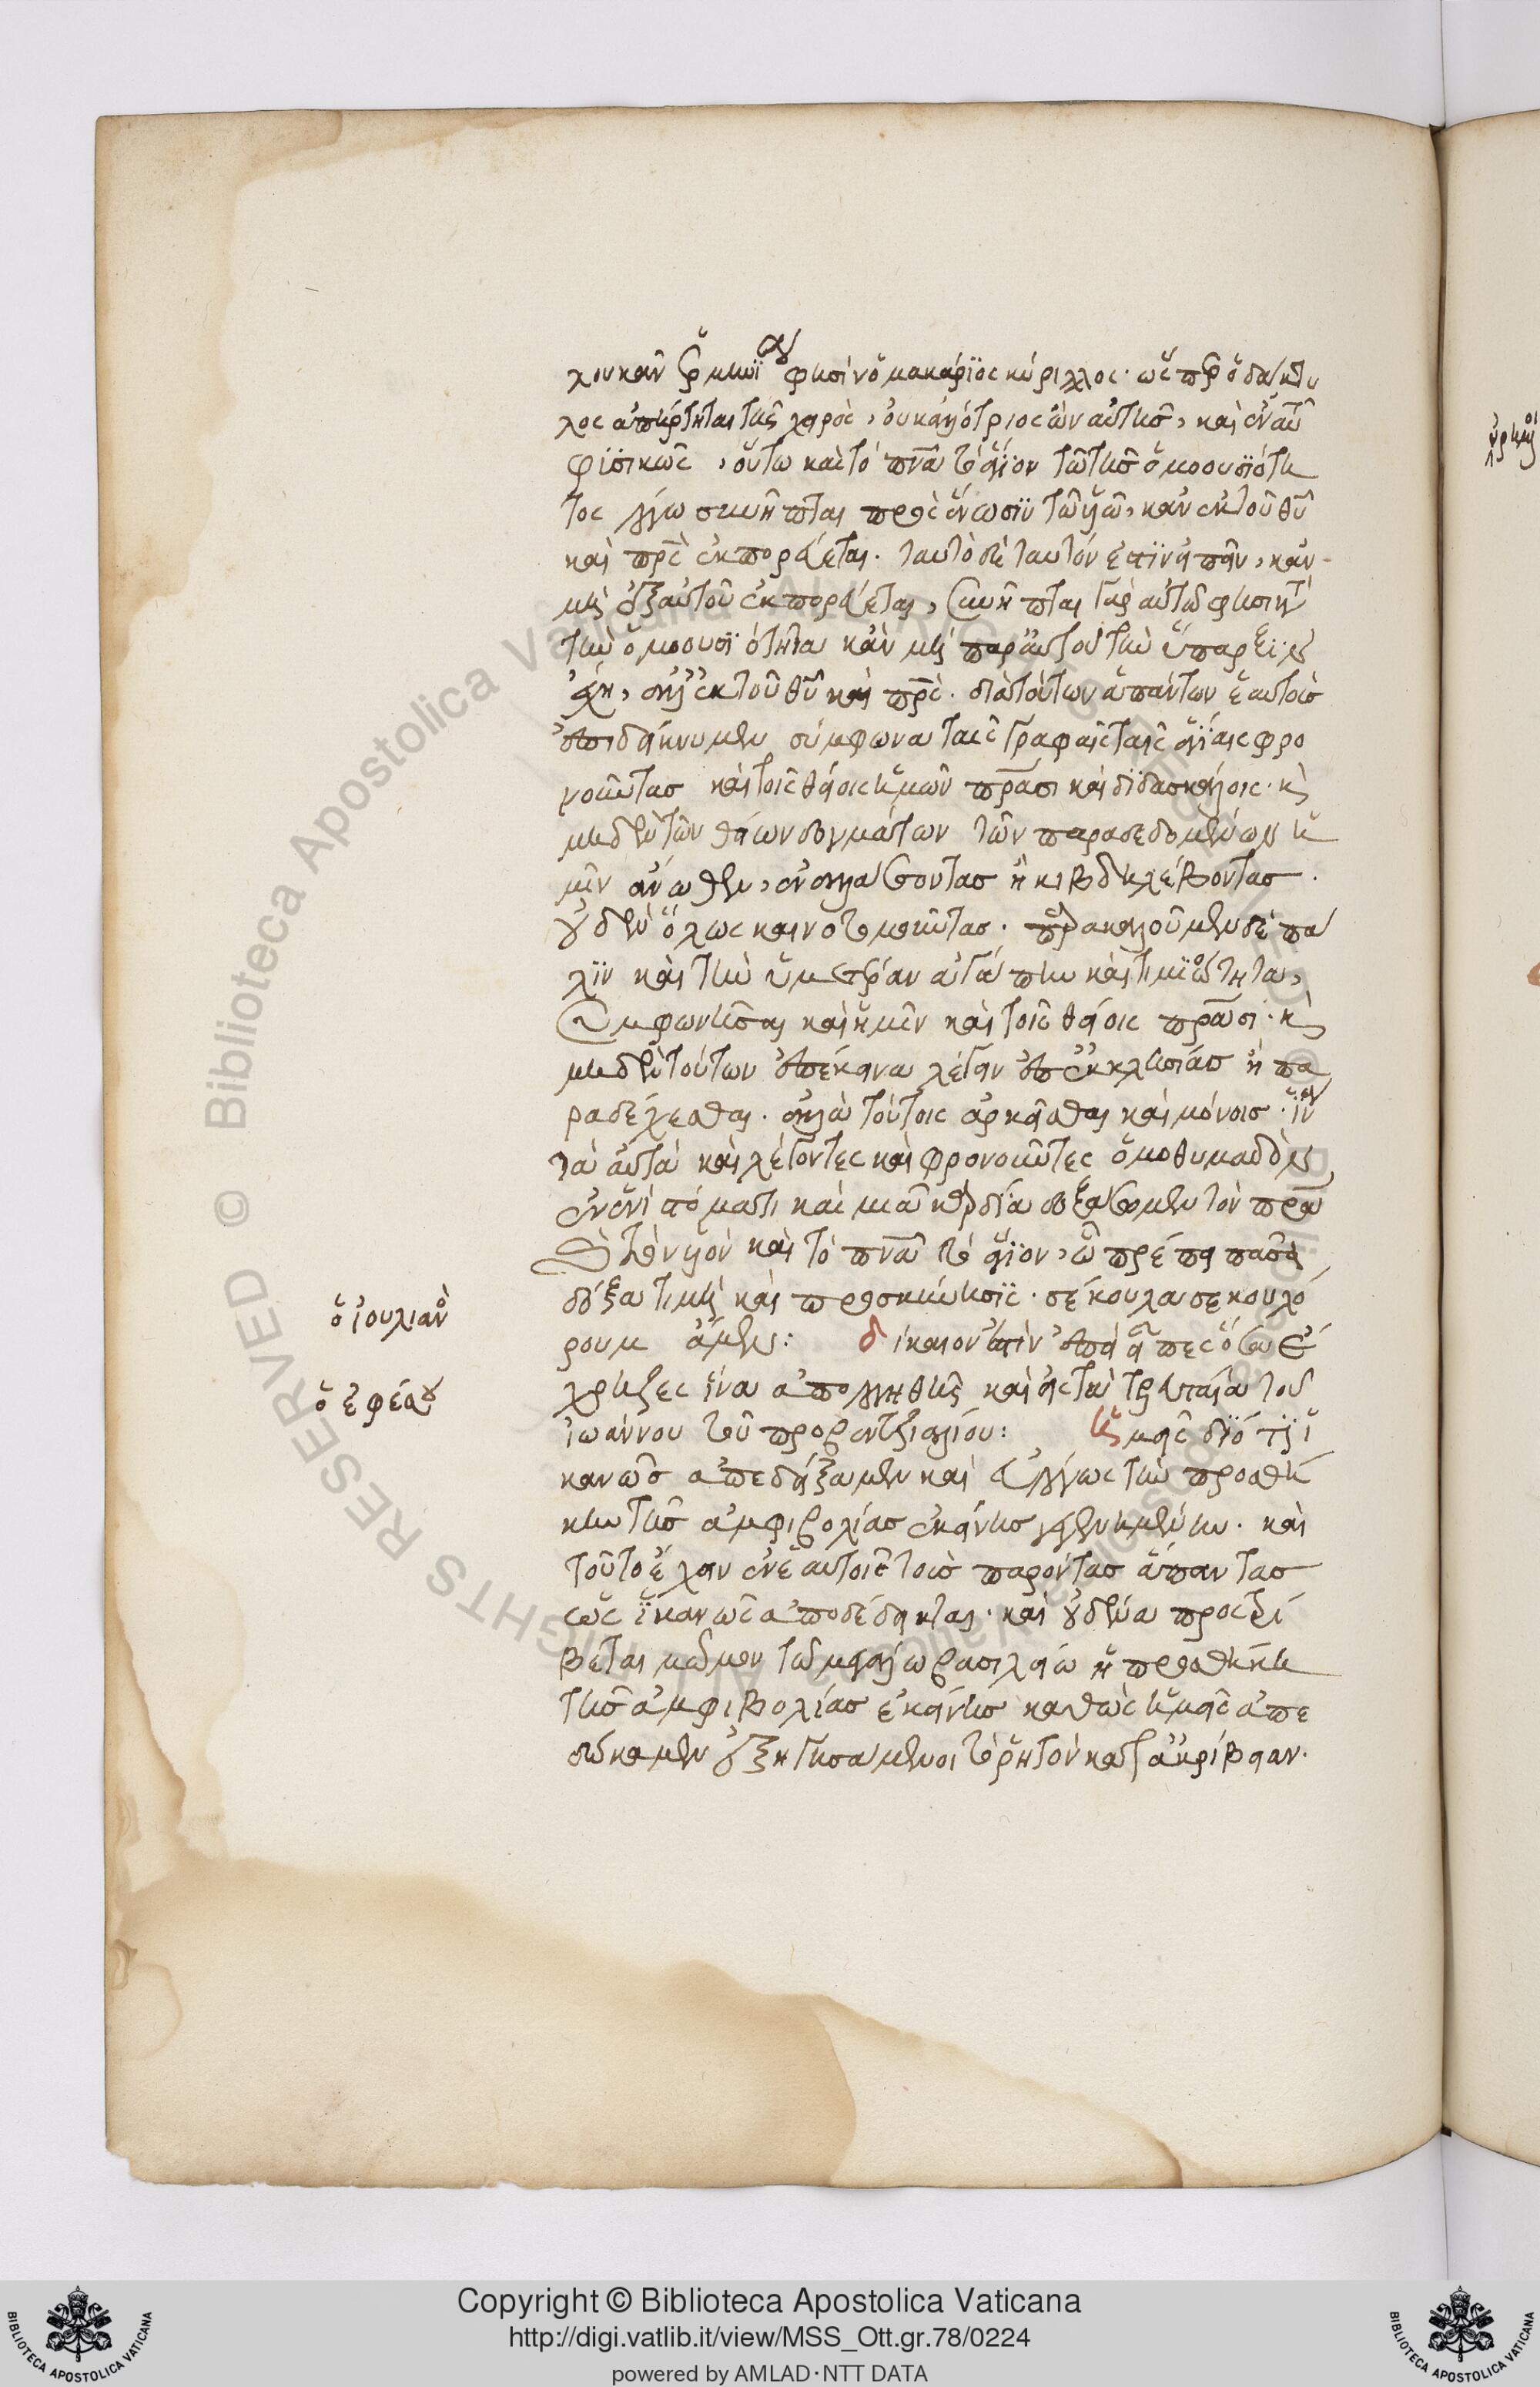 φησίν ὁ μακάριος κύριλλος· ὥσπερ ὁ δάκτυ
λος ἀπήρτηται τῆς χειρὸς, οὐκ ἀλλότριος ὢν αὐτῆς, καὶ ἐν αὐτῇ
φυσικῶς, οὕτω καὶ τὸ πνᾶ τὸ ἅγιον τῷ τῆς ὁμοουσιότη
τος λόγω συνῆπται πρὸς ἕνωσιν τῷ υἱῶ, κἂν ἐκ τοῦ θυ
καὶ πρς ἐκπορεύεται. ταυτὸ δὲ ταυτόν ἐστιν εἰπεῖν, κἂν
μὴ ἐξ αὐτοῦ ἐκπορεύεται, συνῆπται γὰρ αὐτῶ φησι
τὴν ὁμοουσιότητα κἂν μὴ παρ' αὐτοῦ τὴν ὕπαρξιν
ἔχη, ἀλλ' ἐκ τοῦ θυ καὶ πρς. διὰ τούτων ἁπάντων ἑαυτοὺς
ἐπιδείκνυμεν σύμφωνα ταῖς γραφαῖς ταῖς ἁγίαις φρο
νοῦντας καὶ τοῖς θείοις ἡμῶν πρασι καὶ διδασκάλοις· κ
μηδὲν τῶν θείων δογμάτων τῶν παραδεδομένων ἡ
μῖν ἄνωθεν, ἐναλλάττοντας ἢ κιβδηλεύοντας.
οὐδὲν ὅλως καινοτομοῦντας. παρακαλοῦμεν δὲ πά
λιν καὶ τὴν ὑμετέραν ἀγάπην καὶ τιμιότητα,
συμφωνῆσαι καὶ ἡμῖν καὶ τοῖς θείοις πρασι· κ
μηδὲν τούτων ἐπέκεινα λέγειν ἐπ' ἐκκλησίας ἢ πα
ραδέχεσθαι. ἀλλὰ τούτοις ἀρκεῖσθαι καὶ μόνοις· ἵν
τὰ αὐτὰ καὶ λέγοντες καὶ φρονοῦντες ὁμοθυμαδὸν
ἐν ἑνὶ στόματι καὶ μιᾶ καρδία δοξάζωμεν τὸν πρα
κ τὸν υἱὸν καὶ τὸ πνᾶ τὸ ἅγιον, ᾧ πρέπει πᾶσα
δόξα τιμὴ καὶ προσκύνησις· σέκουλα σεκουλό
ρουμ ἀμὴν: δίκαιόν ἐστιν ἐπεὶ εἶπες ὅσα ἔ
χρηζες ἵνα ἀπολογηθῆς καὶ εἰς τὰ τελευταῖα τοῦ
ἰωάννου τοῦ προβιντζιαλίου: ἡμεῖς διότι ἱ
κανῶς ἀπεδείξαμεν καὶ εὐλόγως τὴν προσθή
κην τῆς ἀμφιβολίας ἐκείνης γεγενημένην. καὶ
τοῦτο ἔχειν ἐν ἑαυτοῖς τοὺς παρόντας ἅπαντας
ὡς ἱκανῶς ἀποδέδεικται. καὶ
τῶ μεγάλω βασιλείω ἡ προσθήκη
τῆς ἀμφιβολίας ἐκείνης καθὼς ἡμεῖς ἀπε
δώκαμεν ἐξηγησάμενοι τὸ ῥητὸν κατ' ἀκρίβειαν.
ὁ ἰουλιανὸς
ὁ ἐφέσου
Copyright © Biblioteca Apostolica Vaticana
http://digi.vatlib.it/view/MSS_Ott.gr.78/0224
powered by AMLAD·NTT DATA
BIBLIOTECA APOSTOLICA VATICANA
BIBLIOTECA APOSTOLICA VATICANA